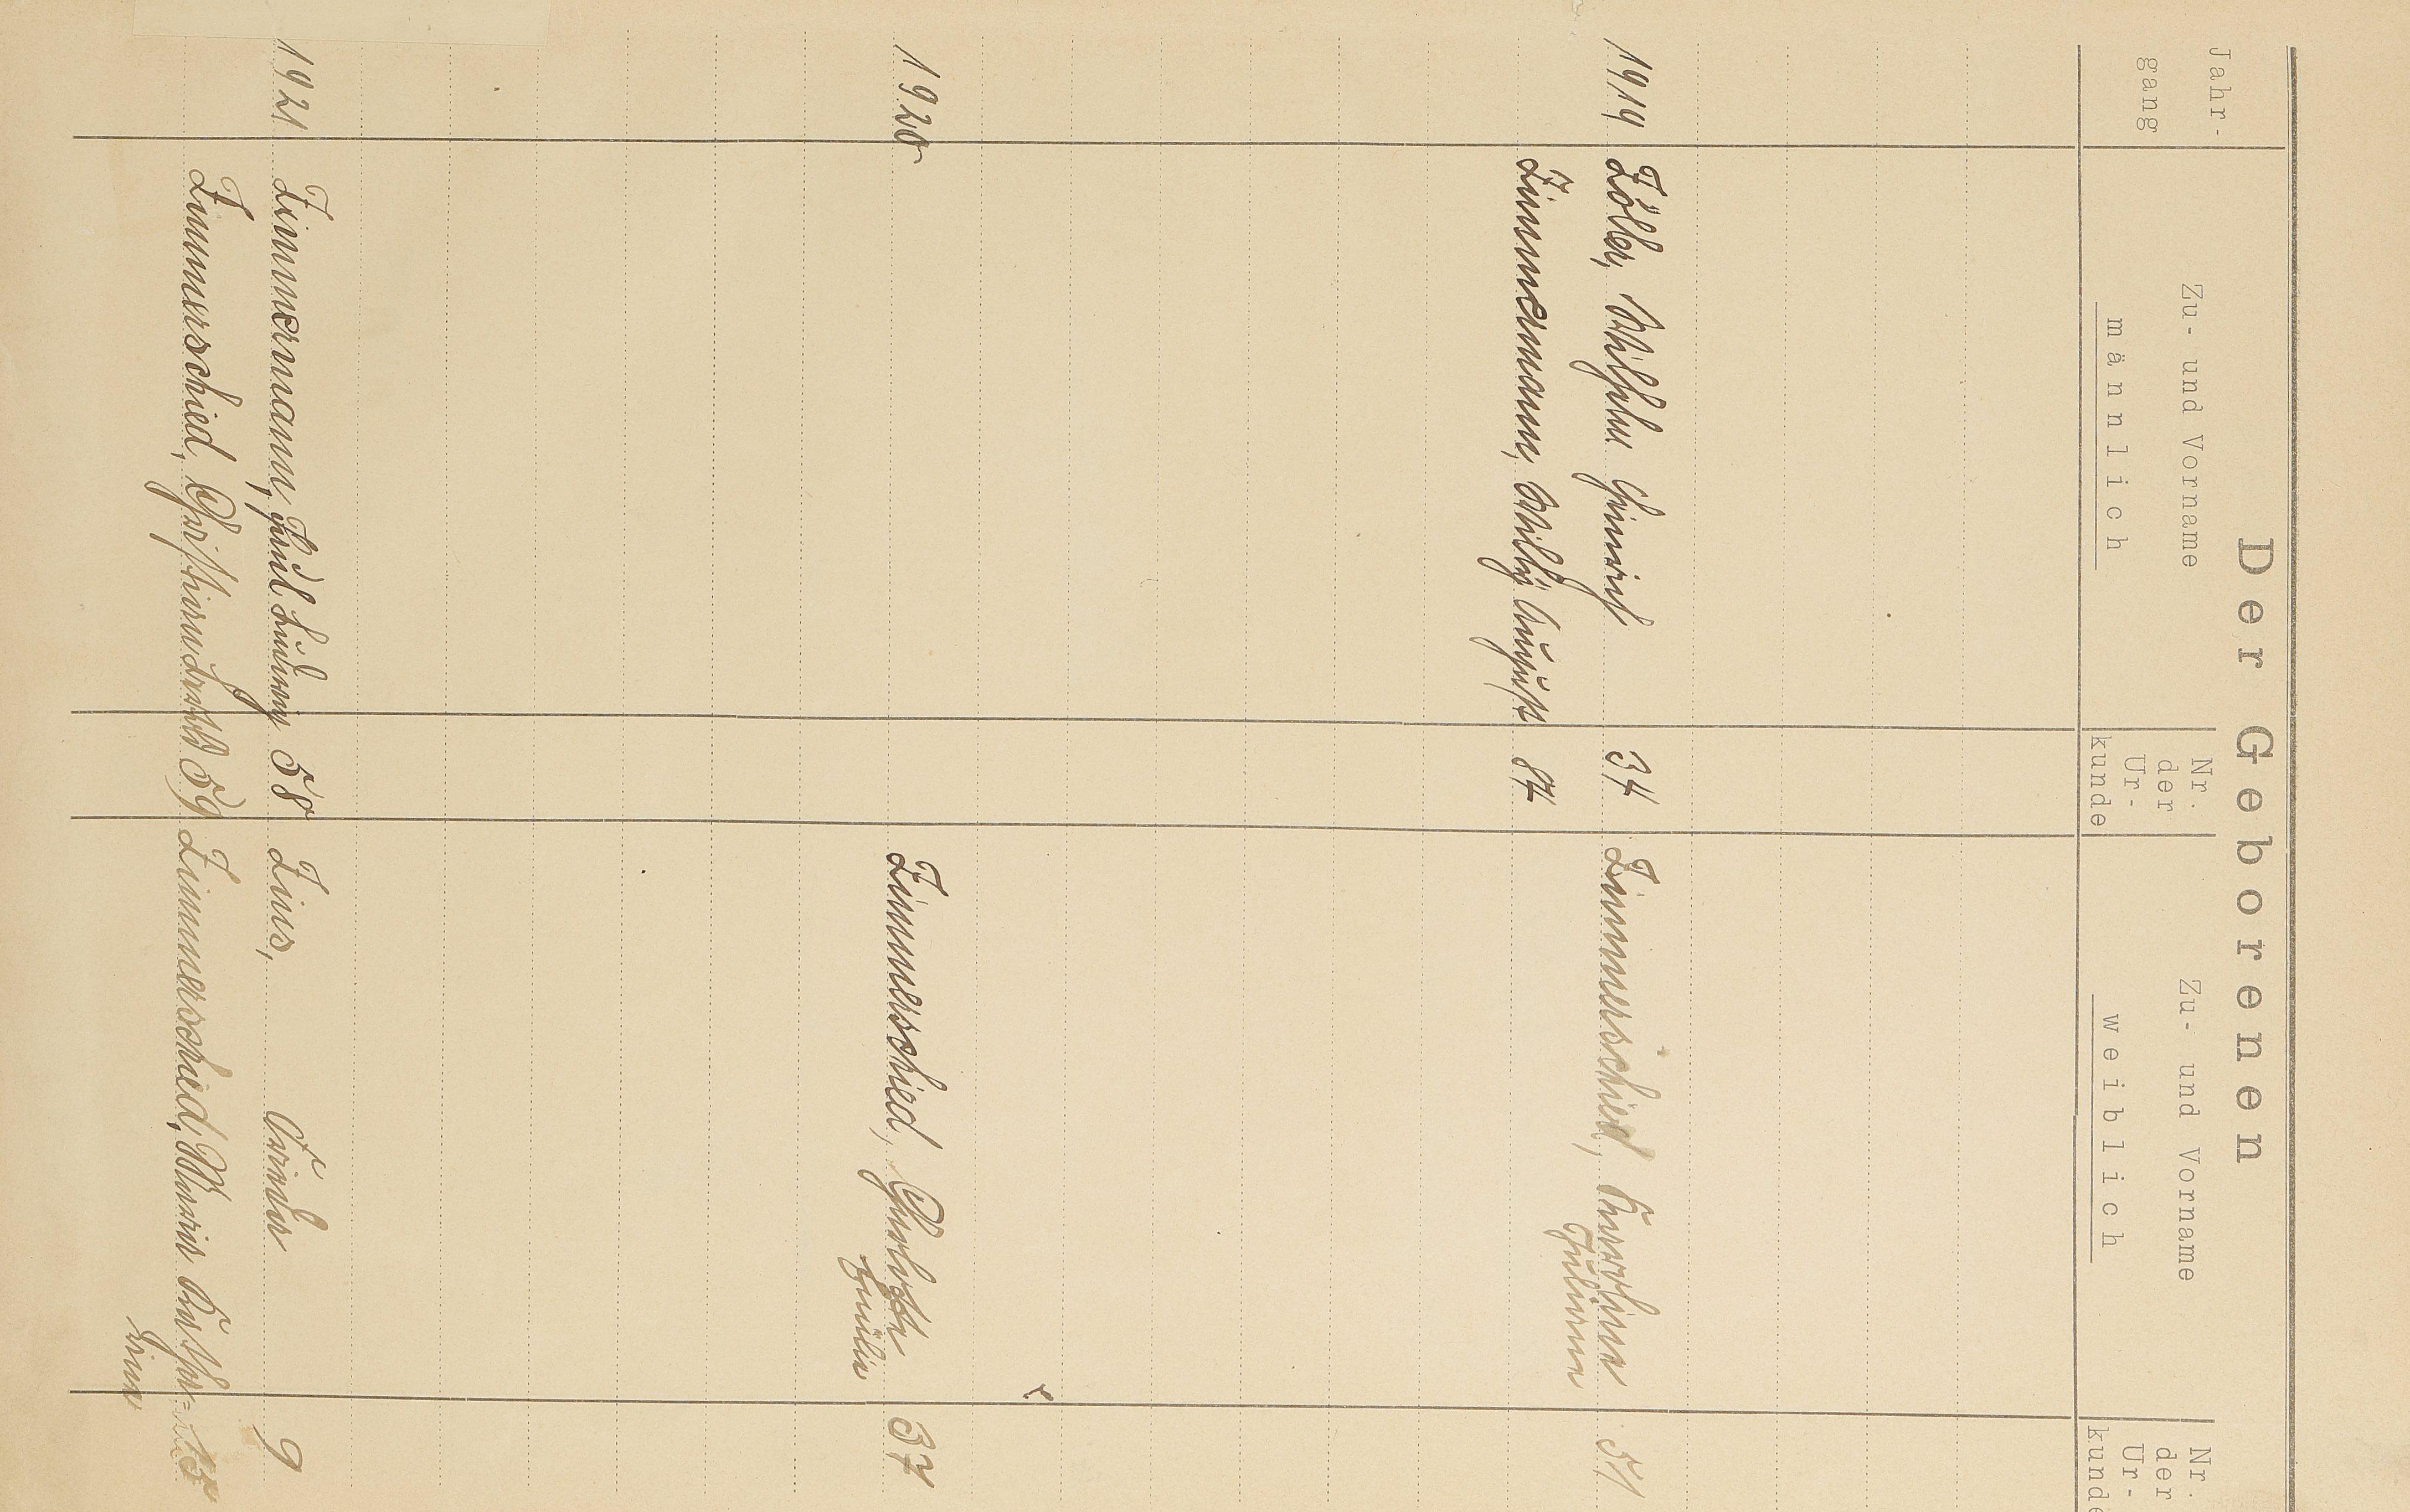 Der Geborenen
Jahr-
gang
Zu- und Vorname
männlich
Nr.
der
Ur-
kunde
Zu- und Vorname
weiblich
Nr.
der
Ur-
kunde
1919 Zöller, Wilhelm Heinrich 34 Zimmerschied, Karoline 51
Juliane
Zimmermann, Willy August 84
1920 Zimmerschied, Charlotte 37
Emilie
1921 Zimmermann, Paul Ludwig 58 Zins, Frieda 9
Zimmerschied, Christian 59 Zimmerschied, Maria Kathe- 15
rine